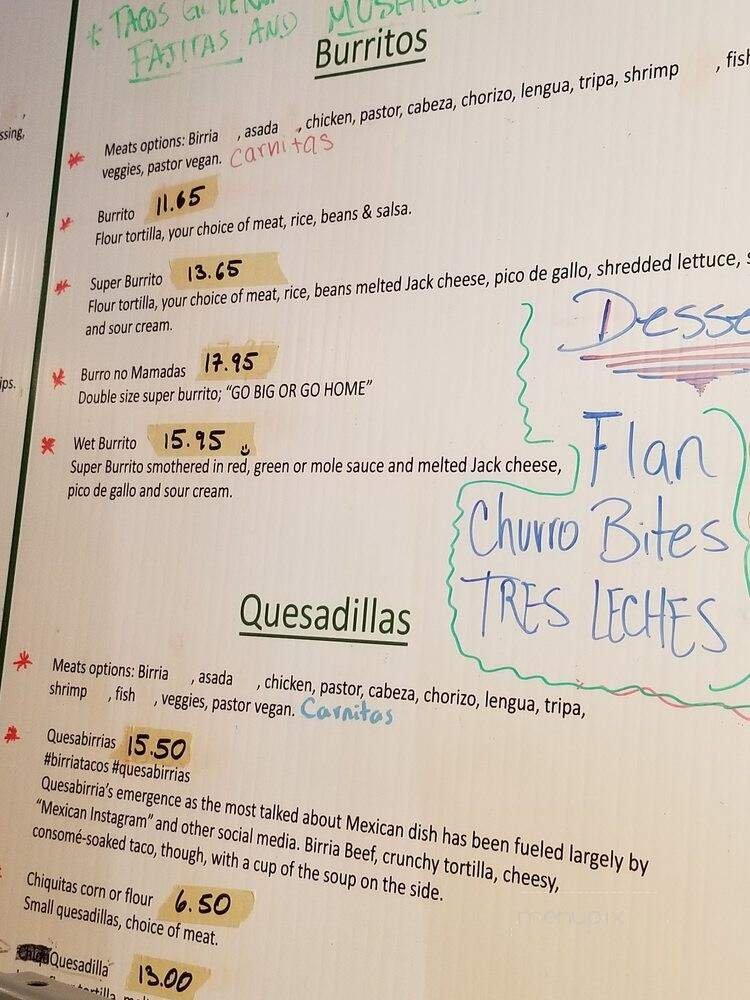 * TACOS
FAJITAS AND
Burritos
ssing,
* Meats options: Birria , asada , chicken, pastor, cabeza, chorizo, lengua, tripa, shrimp , fish
veggies, pastor vegan. Carnitas
* Burrito 11.65
Flour tortilla, your choice of meat, rice, beans & salsa.
* Super Burrito 13.65
Flour tortilla, your choice of meat, rice, beans melted Jack cheese, pico de gallo, shredded lettuce, s
and sour cream.
Desse
ips.
* Burro no Mamadas 17.95
Double size super burrito; "GO BIG OR GO HOME"
* Wet Burrito 15.95
Super Burrito smothered in red, green or mole sauce and melted Jack cheese,
pico de gallo and sour cream.
Flan
Churro Bites
TRES LECHES
Quesadillas
* Meats options: Birria , asada , chicken, pastor, cabeza, chorizo, lengua, tripa,
shrimp , fish , veggies, pastor vegan. Carnitas
* Quesabirrias 15.50
#birriatacos #quesabirrias
Quesabirria's emergence as the most talked about Mexican dish has been fueled largely by
"Mexican Instagram" and other social media. Birria Beef, crunchy tortilla, cheesy,
consomé-soaked taco, though, with a cup of the soup on the side.
Chiquitas corn or flour 6.50
Small quesadillas, choice of meat.
Quesadilla 13.00
menupix